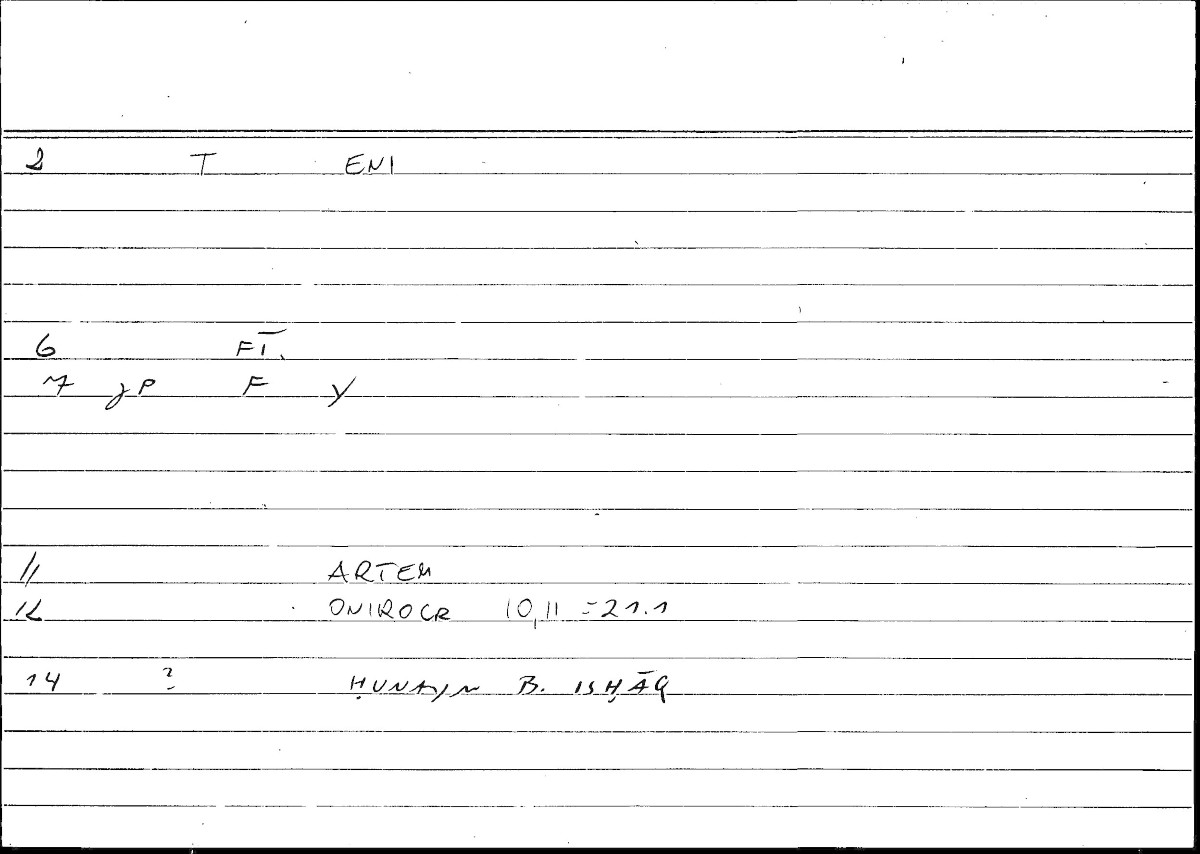 2 T ENI
6 FĪ.
7 γP F y
11 ARTEM
12 ONIROCR 10,11 = 21.1
14 ? ḤUNAYN B. ISḤĀQ